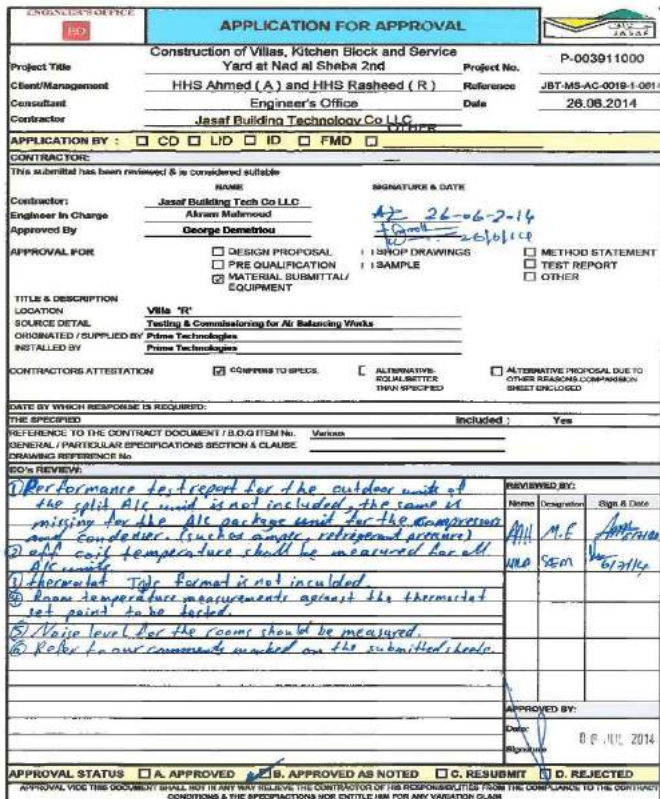 ENGINEER'S OFFICE
EO
APPLICATION FOR APPROVAL
JASAF
Project Title Construction of Villas, Kitchen Block and Service Yard at Nad al Sheba 2nd Project No. P-003911000
Client/Management HHS Ahmed ( A ) and HHS Rasheed ( R ) Reference JBT-MS-AC-0019-1-0614
Consultant Engineer's Office Date 26.06.2014
Contractor Jasaf Building Technology Co LLC
OTHER
APPLICATION BY : CD LID ID FMD
CONTRACTOR:
This submittal has been reviewed & is considered suitable
NAME SIGNATURE & DATE
Contractor: Jasaf Building Tech Co LLC
Engineer In Charge Akram Mahmoud 26-06-2014
Approved By George Demetriou 26/6/14
APPROVAL FOR DESIGN PROPOSAL SHOP DRAWINGS METHOD STATEMENT
PRE QUALIFICATION SAMPLE TEST REPORT
MATERIAL SUBMITTAL/ OTHER
EQUIPMENT
TITLE & DESCRIPTION
LOCATION Villa 'R'
SOURCE DETAIL Testing & Commissioning for Air Balancing Works
ORIGINATED / SUPPLIED BY Prime Technologies
INSTALLED BY Prime Technologies
CONTRACTORS ATTESTATION CONFIRMS TO SPECS. ALTERNATIVE- EQUAL/BETTER THAN SPECIFIED ALTERNATIVE PROPOSAL DUE TO OTHER REASONS COMPARISION SHEET ENCLOSED
DATE BY WHICH RESPONSE IS REQUIRED:
THE SPECIFIED Included : Yes
REFERENCE TO THE CONTRACT DOCUMENT / B.O.Q ITEM No. Various
GENERAL / PARTICULAR SPECIFICATIONS SECTION & CLAUSE
DRAWING REFERENCE No
EO's REVIEW:
① Performance test report for the outdoor units of
the split A/c unit is not included, the same is
missing for the A/c package unit for the compressor
and condenser. (such as amper, refrigerant pressure)
② off coil temperature shall be measured for all
A/c units.
③ thermostat This format is not inculded.
④ Room temperature measurements against the thermostat
set point to be tested.
⑤ Noise level for the rooms should be measured.
⑥ Refer to our comments marked on the submitted sheets.
REVIEWED BY:
Name Designation Sign & Date
AAH M.E
SEM 6/7/14
APPROVED BY:
Date: 06 JUL 2014
Signature
APPROVAL STATUS A. APPROVED B. APPROVED AS NOTED C. RESUBMIT D. REJECTED
APPROVAL VIDE THIS DOCUMENT SHALL NOT IN ANY WAY RELIEVE THE CONTRACTOR OF HIS RESPONSIBILITIES FROM THE COMPLIANCE TO THE CONTRACT
CONDITIONS & THE SPECIFICATIONS NOR ENTITLE HIM FOR ANY VARIATION CLAIM